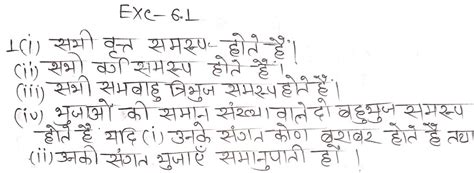 EXC-6.1
1(i) सभी वृत्त समरूप होते हैं।
(ii) सभी वर्ग समरूप होते हैं।
(iii) सभी समबाहु त्रिभुज समरूप होते हैं।
(iv) भुजाओं की समान संख्या वाले दो बहुभुज समरूप
होते हैं यदि (i) उनके संगत कोण बराबर होते हैं तथा
(ii) उनकी संगत भुजाएँ समानुपाती हों।